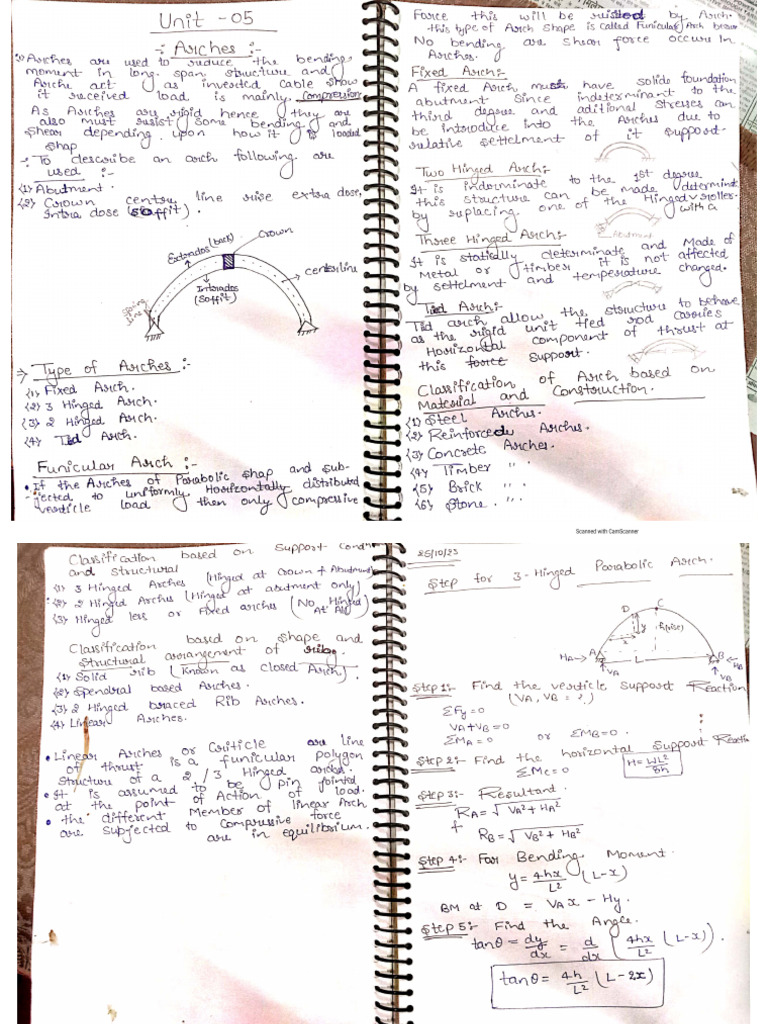 Unit - 05
:- Arches :-
Arches are used to reduce the bending
moment in long span structure and
Arche act as inverted cable show
it received load is mainly compression
As Arches are rigid hence they are
also must resist some bending and
shear depending upon how it is loaded
shap
:- To describe an arch following are
used :-
(1) Abutment.
(2) Crown centry line rise extra dose,
Intra dose (soffit).
Crown
Extrados (back)
centerline
Intrados
(Soffit)
Spring
line
→ Type of Arches :-
(1) Fixed Arch.
(2) 3 Hinged Arch.
(3) 2 Hinged Arch.
(4) Tied Arch.
Funicular Arch :-
• If the Arches of Parabolic Shap and sub-
jected to uniformly Horizontally distributed
verticle load then only compressive
Force this will be resisted by Arch.
this type of Arch shape is called Funicular Arch
No bending are shear force occure in
Arches.
Fixed Arch:-
A fixed Arch must have solide foundation
abutment since indeterminant to the
third degree and aditional stresses can
be introduce into the Arches due to
relative settelment of it support.
Two Hinged Arch:-
It is indorminate to the 1st degree
this structure can be made determinate
by replacing one of the Hinged roller.
with a
Abutment
Three Hinged Arch:-
It is statically determinate and Made of
Metal or timber it is not affected
by settelment and temperature changed.
Tied Arch:-
Tied arch allow the structure to behave
as the rigid unit tied rod carries
Horizontal component of thrust at
this force support.
Classification of Arch based on
Material and Construction.
(1) Steel Arches.
(2) Reinforcedc Arches.
(3) Concrete Arches.
(4) Timber " ".
(5) Brick " ".
(6) Stone. " ".
Scanned with CamScanner
Classification based on Support Condn
and structural
(1) 3 Hinged Arches (Hinged at crown + Abutment)
(2) 2 Hinged Arches (Hinged at abutment only)
(3) Hinged less or Fixed arches (No Hinged
At All)
Classification based on shape and
structural arrangement of ribg.
(1) Solid rib (Known as closed Arch).
(2) Spendral based Arches.
(3) 2 Hinged braced Rib Arches.
(4) Linear Arches.
• Linear Arches or Criticle are line
of thrust is a funicular polygon
Structure of a 2/3 Hinged arched.
• It is assumed to be pin jointed
at the point of Action of load.
• the different Member of linear Arch
are supjected to compressive force
are in equilibrium.
25/10/23
Step for 3-Hinged Parabolic Arch.
D C
y h(rise)
x
HA A L B HB
VA VB
Step 1:- Find the verticle support Reaction
(VA, VB = ?)
ΣFy = 0
VA+VB = 0
ΣMA = 0 or ΣMB = 0.
Step 2:- Find the horizontal Support Reactn
ΣMC = 0
H = WL²/8h
Step 3:- Resultant.
RA = √VA² + HA²
f
RB = √VB² + HB²
Step 4:- For Bending Moment.
y = 4hx/L² (L-x)
BM at D = VAx - Hy.
Step 5:- Find the Angle.
tanθ = dy/dx = d/dx (4hx/L² (L-x)).
tanθ = 4h/L² (L-2x)